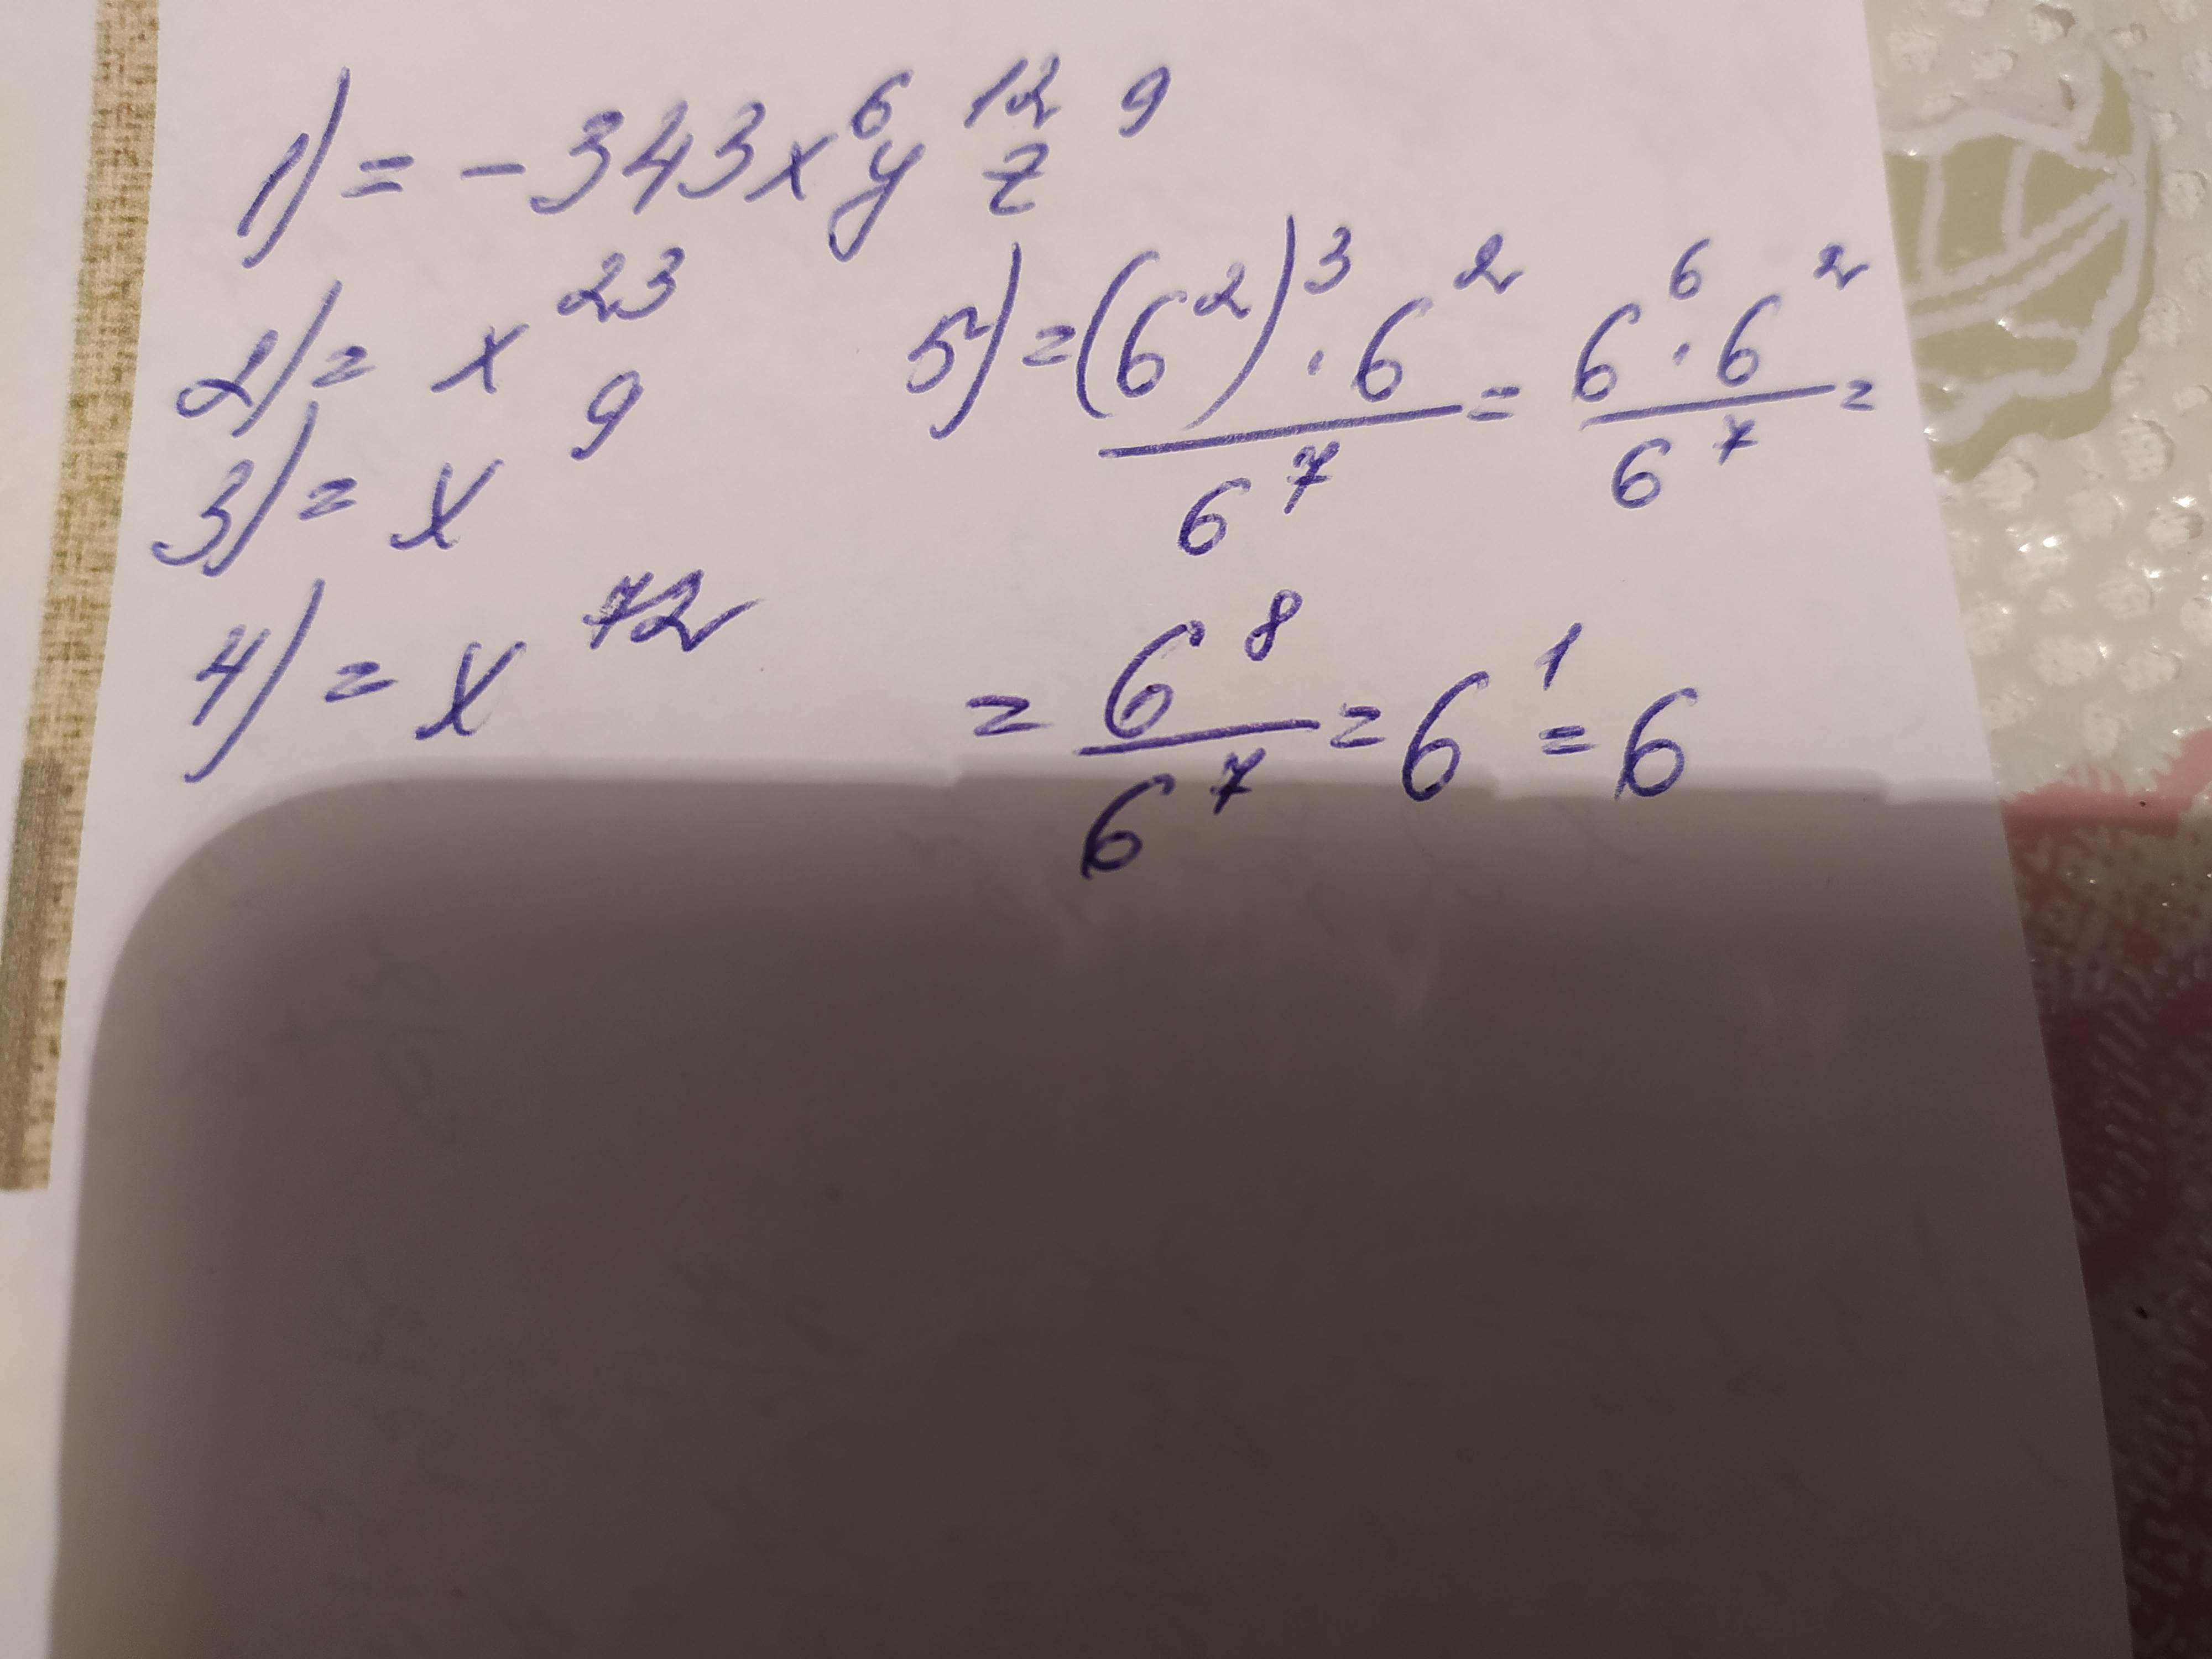 1) = -343x⁶y¹²z⁹
2) = x²³
3) = x⁹
4) = x⁷²
5) = (6²)³ · 6² / 6⁷ = 6⁶ · 6² / 6⁷ =
= 6⁸ / 6⁷ = 6¹ = 6